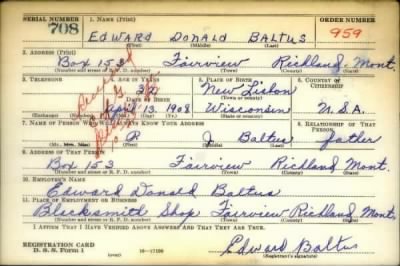 SERIAL NUMBER 1. NAME (Print) ORDER NUMBER
708 EDWARD DONALD BALTUS 959
(First) (Middle) (Last)
2. ADDRESS (Print)
Box 153 Fairview Richland, Mont.
(Number and street or R. F. D. number) (Town) (County) (State)
3. TELEPHONE 4. AGE IN YEARS 5. PLACE OF BIRTH 6. COUNTRY OF CITIZENSHIP
32 New Lisbon
(Town or county)
DATE OF BIRTH
April 13, 1908 Wisconsin U.S.A.
(Mo.) (Day) (Yr.) (State or country)
7. NAME OF PERSON WHO WILL ALWAYS KNOW YOUR ADDRESS 8. RELATIONSHIP OF THAT PERSON
R J. Baltus Father
(Mr., Mrs., Miss) (First) (Middle) (Last)
9. ADDRESS OF THAT PERSON
Box 153 Fairview Richland Mont.
(Number and street or R. F. D. number) (Town) (County) (State)
10. EMPLOYER'S NAME
Edward Donald Baltus
11. PLACE OF EMPLOYMENT OR BUSINESS
Blacksmith Shop Fairview Richland Mont.
(Number and street or R. F. D. number) (Town) (County) (State)
I AFFIRM THAT I HAVE VERIFIED ABOVE ANSWERS AND THAT THEY ARE TRUE.
REGISTRATION CARD
D. S. S. Form 1 Edward Baltus
(Registrant's signature)